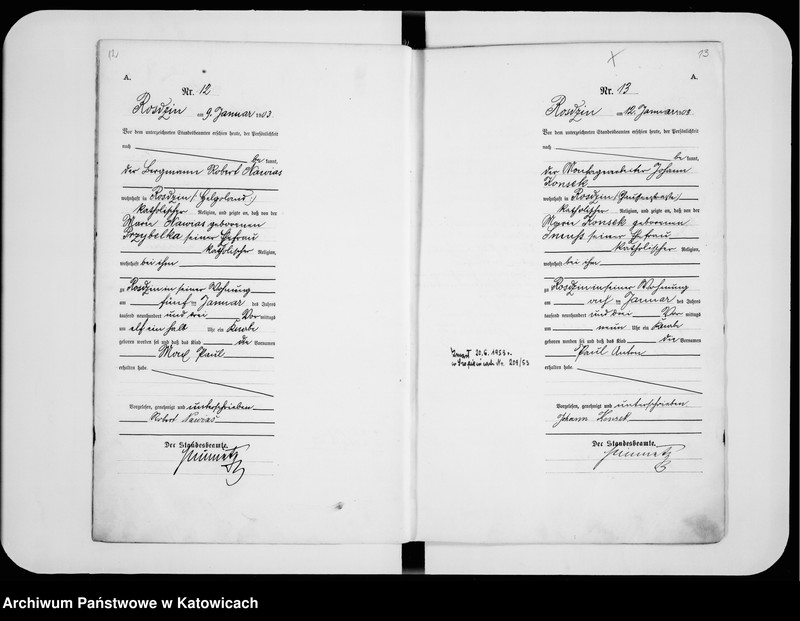 12
A.
Nr. 12
Rosdzin am 9. Januar 1903.
Vor dem unterzeichneten Standesbeamten erschien heute, der Persönlichkeit
nach
be kannt,
der Bergmann Robert Nawias
wohnhaft in Rosdzin (Helgoland)
katholischer Religion, und zeigte an, daß von der
Marie Nawias geborenen
Przybelka seiner Ehefrau
katholischer Religion,
wohnhaft bei ihm
zu Rosdzin in seiner Wohnung
am fünf ten Januar des Jahres
tausend neunhundert und drei Vor mittags
um elf ein halb Uhr ein Knabe
geboren worden sei und daß das Kind die Vornamen
Max Paul
erhalten habe.
Vorgelesen, genehmigt und unterschrieben
Robert Nawias
Der Standesbeamte.
13
A.
Nr. 13
Rosdzin am 12. Januar 1903.
Vor dem unterzeichneten Standesbeamten erschien heute, der Persönlichkeit
nach
be kannt,
der Montagearbeiter Johann
Konsek
wohnhaft in Rosdzin
katholischer Religion, und zeigte an, daß von der
Marie Konsek geborenen
seiner Ehefrau
katholischer Religion,
wohnhaft bei ihm
zu Rosdzin in seiner Wohnung
am acht ten Januar des Jahres
tausend neunhundert und drei Vor mittags
um neun Uhr ein Knabe
geboren worden sei und daß das Kind die Vornamen
Paul Anton
erhalten habe.
Vorgelesen, genehmigt und unterschrieben.
Johann
Der Standesbeamte.
20.6.1953 r.
Nr. 209/53
Archiwum Państwowe w Katowicach